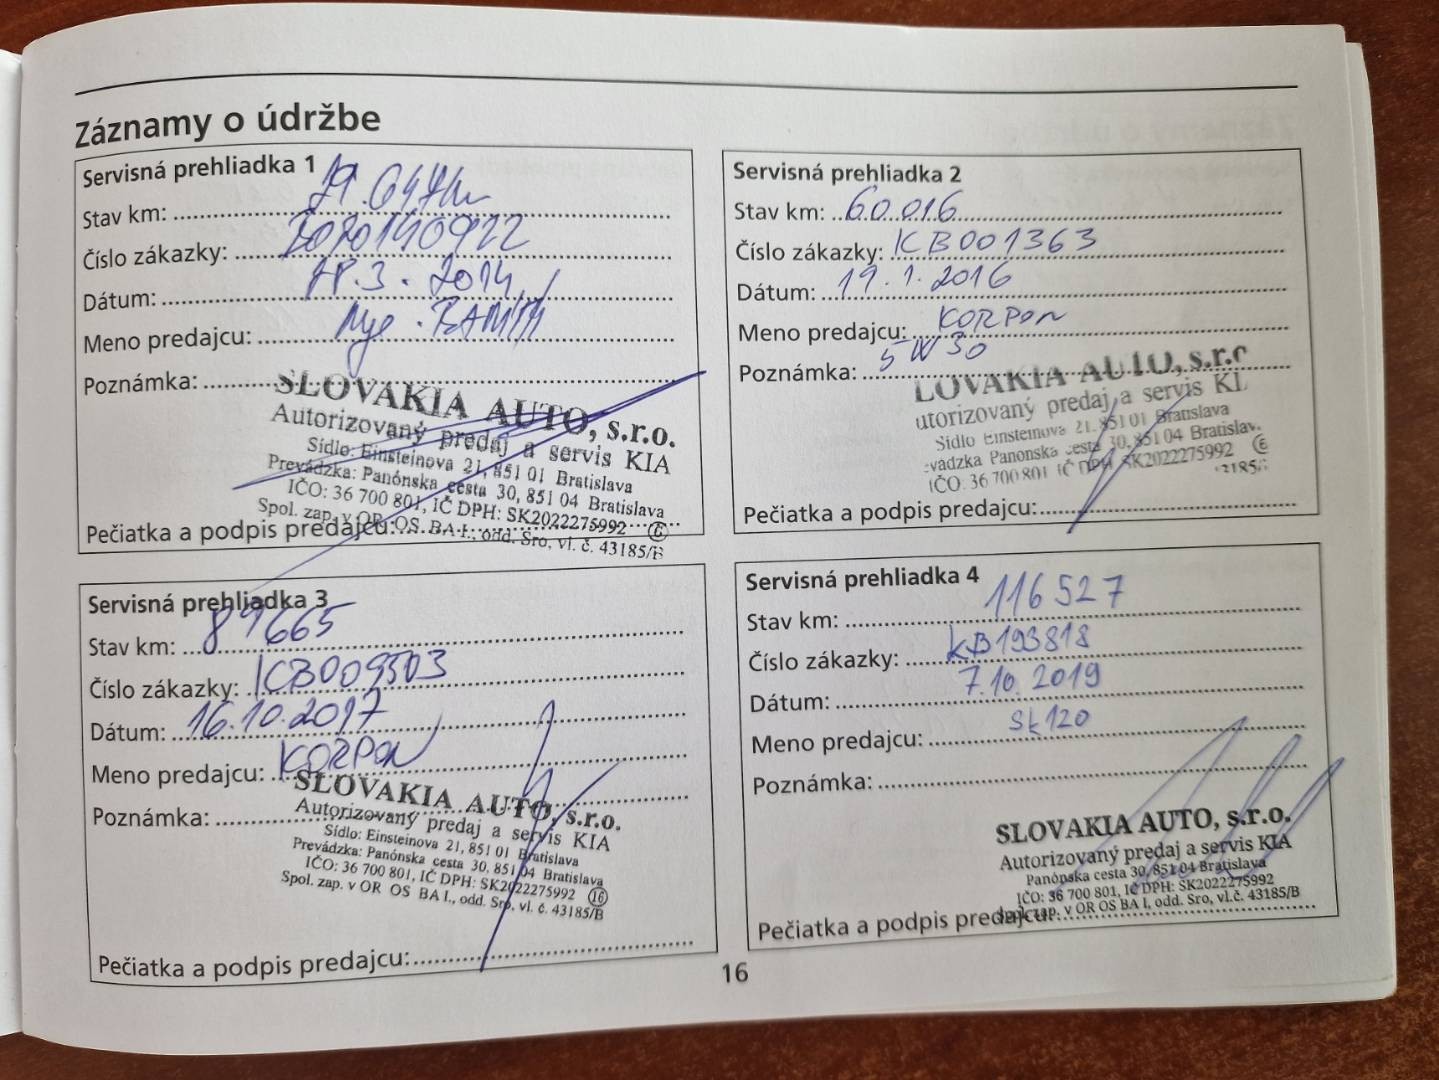 Záznamy o údržbe
Servisná prehliadka 1
Stav km:
Číslo zákazky:
Dátum: 3. 2014
Meno predajcu:
Poznámka:
SLOVAKIA AUTO, s.r.o.
Autorizovaný predaj a servis KIA
Sídlo: Einsteinova 21, 851 01 Bratislava
Prevádzka: Panónska cesta 30, 851 04 Bratislava
IČO: 36 700 801, IČ DPH: SK2022275992 6
Spol. zap. v OR OS BA I., odd. Sro, vl. č. 43185/B
Pečiatka a podpis predajcu:
Servisná prehliadka 2
Stav km: 60.016
Číslo zákazky: KB001363
Dátum: 19.1.2016
Meno predajcu: KORPON
Poznámka: 5W30
LOVAKIA AUTO, s.r.o
utorizovaný predaj a servis KI
Sídlo Einsteinova 21, 851 01 Bratislava
vádzka Panónska cesta 30, 851 04 Bratislav
IČO: 36 700 801 IČ DPH SK2022275992 6
43185/
Pečiatka a podpis predajcu:
Servisná prehliadka 3
Stav km: 89665
Číslo zákazky: KB009503
Dátum: 16.10.2017
Meno predajcu: KORPON
Poznámka:
SLOVAKIA AUTO, s.r.o.
Autorizovaný predaj a servis KIA
Sídlo: Einsteinova 21, 851 01 Bratislava
Prevádzka: Panónska cesta 30, 851 04 Bratislava
IČO: 36 700 801, IČ DPH: SK2022275992 16
Spol. zap. v OR OS BA I., odd. Sro, vl. č. 43185/B
Pečiatka a podpis predajcu:
Servisná prehliadka 4
Stav km: 116527
Číslo zákazky: KB193818
Dátum: 7.10.2019
Meno predajcu: SL120
Poznámka:
SLOVAKIA AUTO, s.r.o.
Autorizovaný predaj a servis KIA
Panónska cesta 30, 851 04 Bratislava
IČO: 36 700 801, IČ DPH: SK2022275992
zap. v OR OS BA I, odd. Sro, vl.č. 43185/B
Pečiatka a podpis predajcu:
16